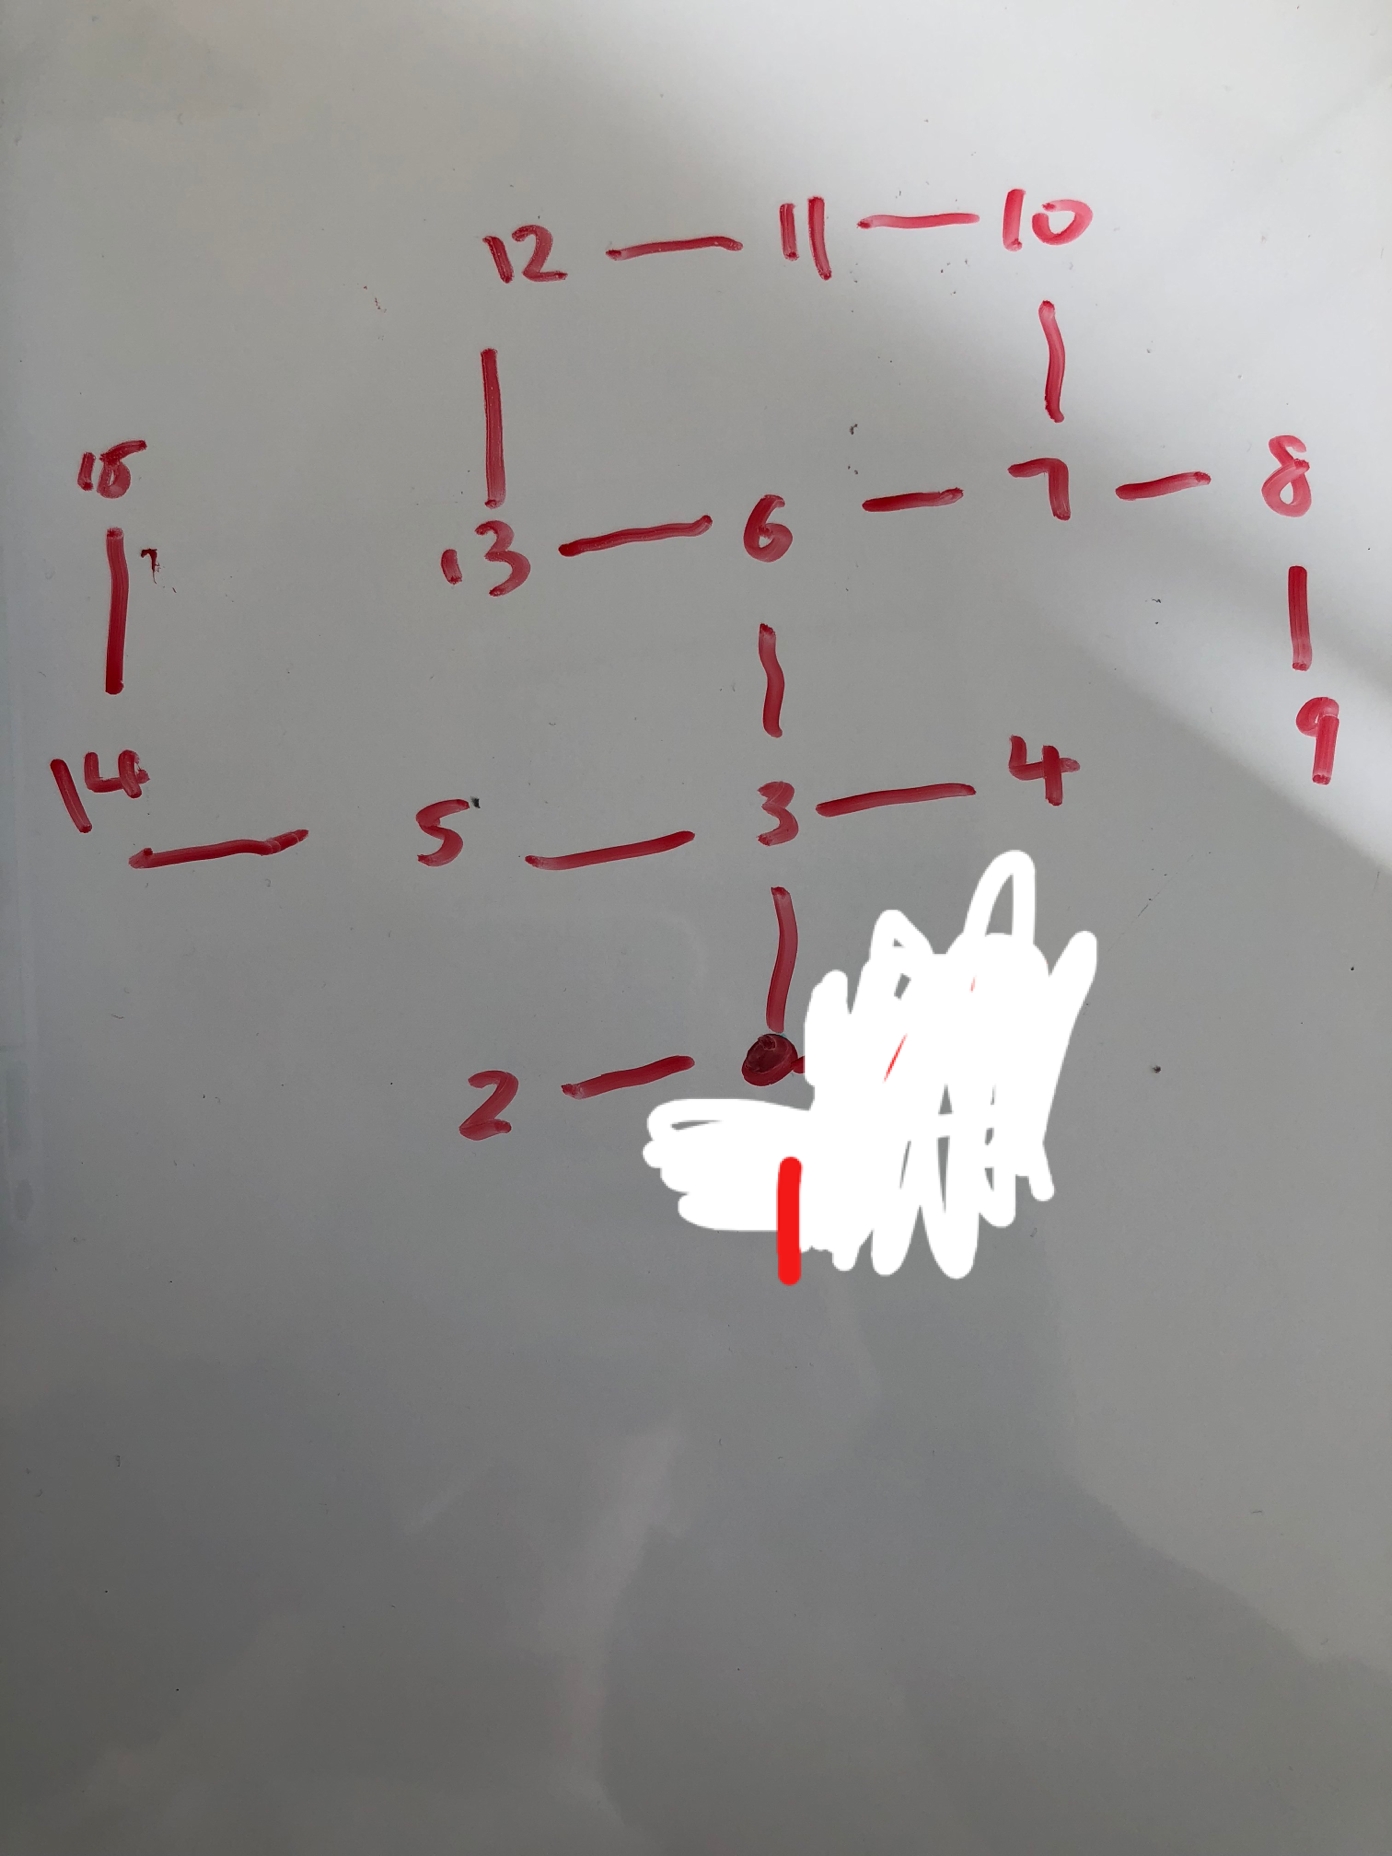 12 — 11 — 10
15 13 — 6 — 7 — 8
9
14 — 5 — 3 — 4
2 —
1